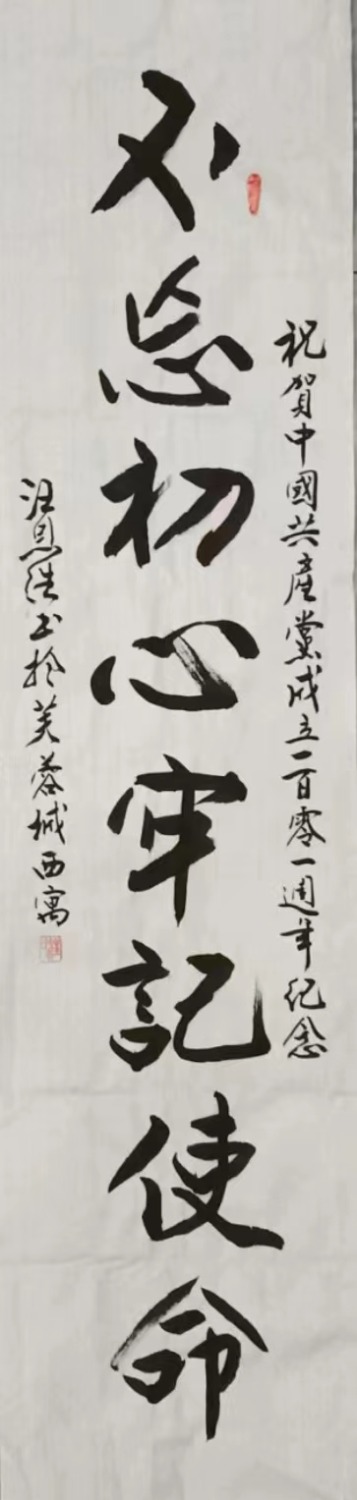 祝賀中國共產黨成立一百零一週年纪念
不忘初心牢記使命
汪恩浩书於芙蓉城西寓